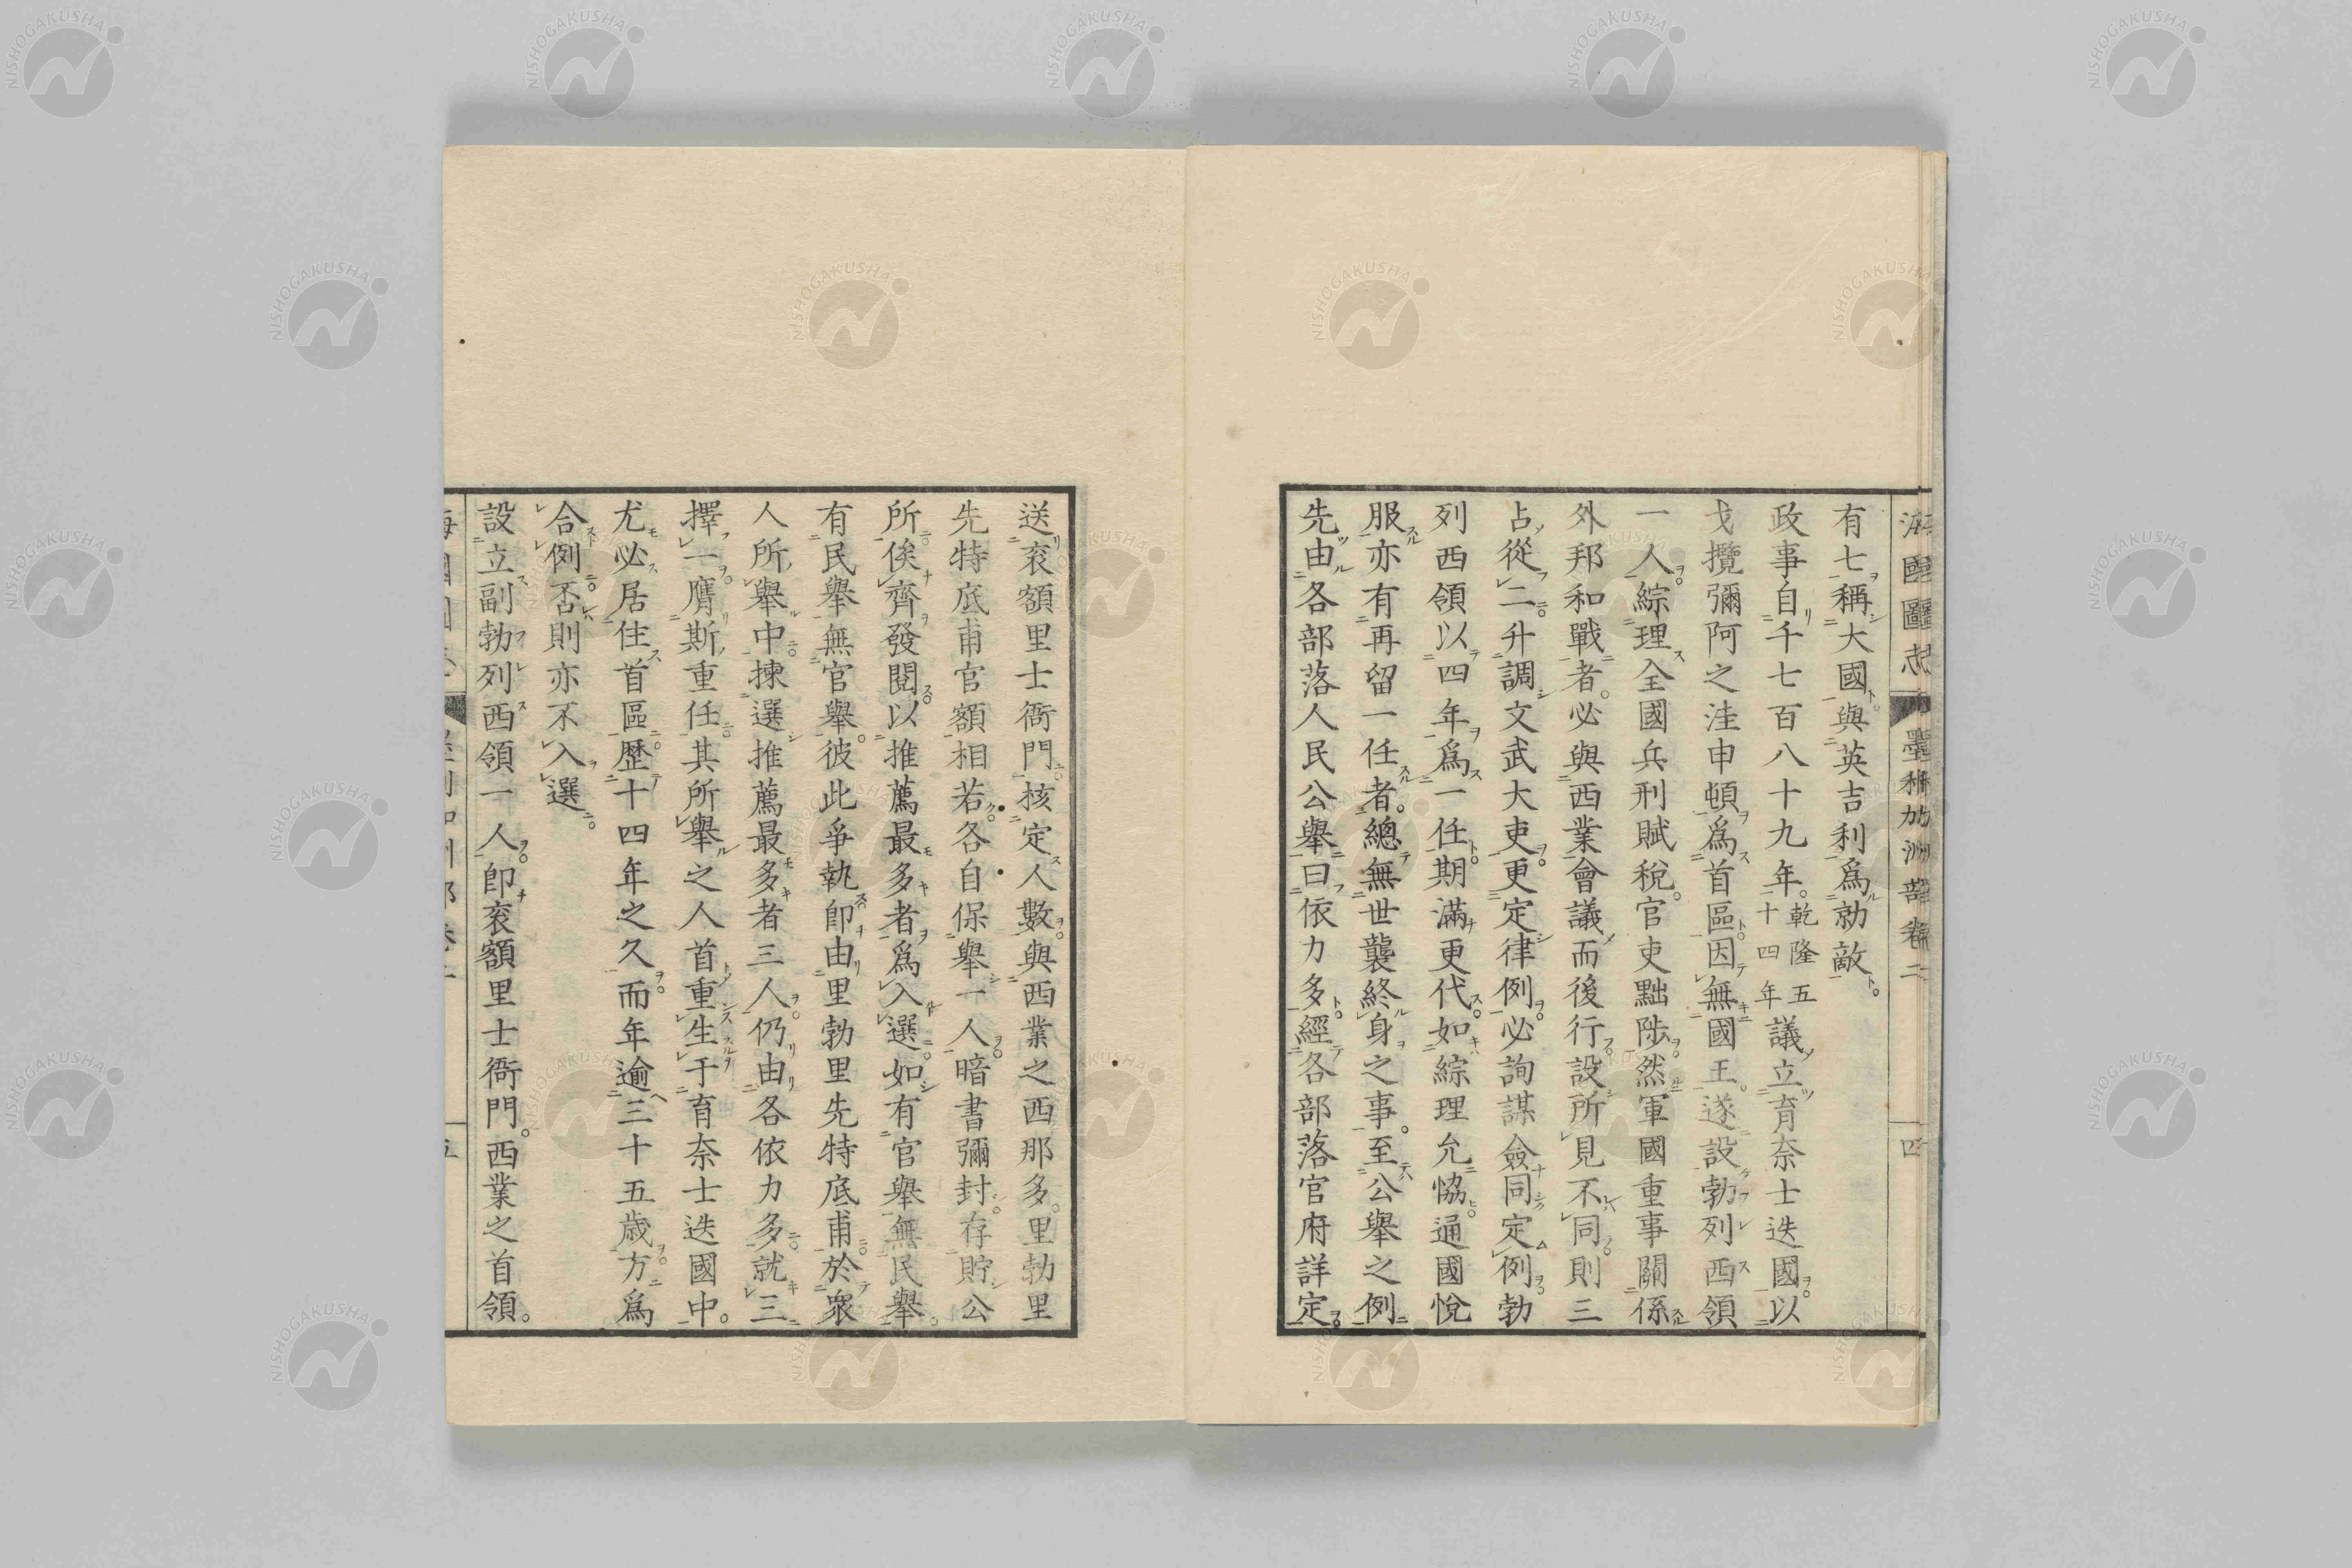 海國圖志 墨利加洲部卷二 四
有七稱大國與英吉利爲勍敵
政事自千七百八十九年乾隆五十四年議立育奈士迭國以
戈攬彌阿之洼申頓爲首區因無國王遂設勃列西領
一人綜理全國兵刑賦稅官吏黜陟然軍國重事關係
外邦和戰者必與西業會議而後行設所見不同則三
占從二升調文武大吏更定律例必詢謀僉同定例勃
列西領以四年爲一任期滿更代如綜理允恊通國悅
服亦有再留一任者總無世襲終身之事至公舉之例
先由各部落人民公舉曰依力多經各部落官府詳定
送衮額里士衙門核定人數與西業之西那多里勃里
先特底甫官額相若各自保舉一人暗書彌封存貯公
所俟齊發閱以推薦最多者爲入選如有官舉無民舉
有民舉無官舉彼此爭執卽由里勃里先特底甫於衆
人所舉中揀選推薦最多者三人仍由各依力多就三
擇一膺斯重任其所舉之人首重生于育奈士迭國中
尤必居住首區歴十四年之久而年逾三十五歳方爲
合例否則亦不入選
設立副勃列西領一人卽衮額里士衙門西業之首領
NISHOGAKUSHA